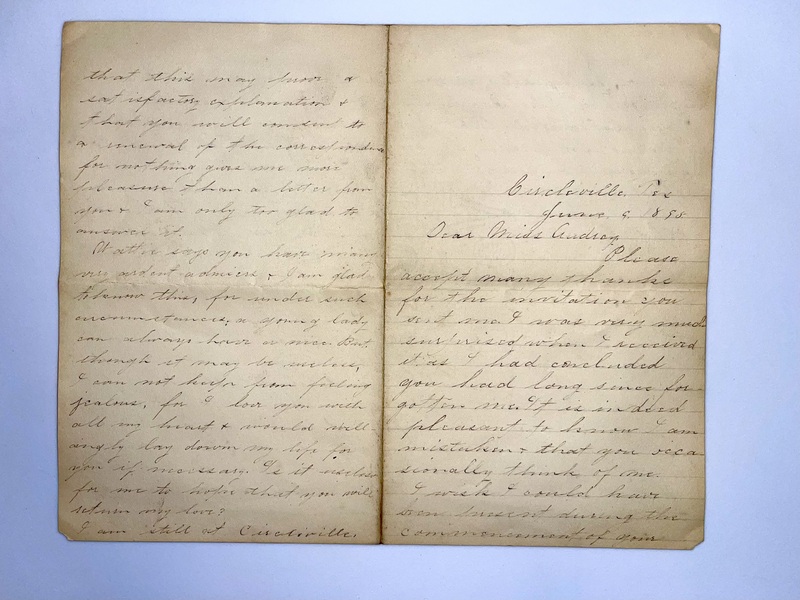 Circleville, Tex
June 5 1898
Dear Miss Audrey
Please
accept many thanks
for the invitation you
sent me. I was very much
surprised when I received
it as I had concluded
you had long since for-
gotten me. It is indeed
pleasant to know I am
mistaken & that you occa
sionally think of me.
I wish I could have
been present during the
commencement of your
that this may prove a
satisfactory explanation &
that you will consent to
a renewal of the correspondence
for nothing gives me more
pleasure than a letter from
you & I am only too glad to
answer it.
says you have many
very ardent admirers & I am glad
to know this, for under such
circumstances, a young lady
can always have a nice. But
though it may be useless,
I can not help from feeling
jealous, for I love you with
all my heart & would will-
ingly lay down my life for
you if necessary. Is it useless
for me to hope that you will
return my love?
I am still at Circleville,